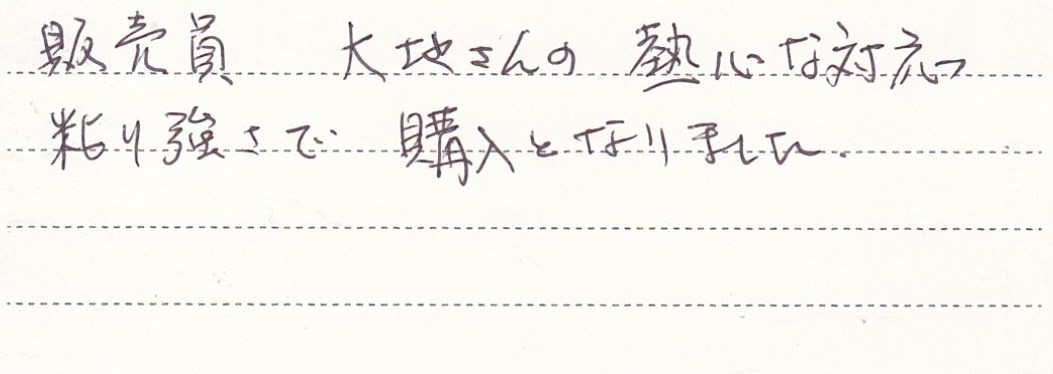 販売員 大地さんの 熱心な対応
粘り強さで 購入となりました.